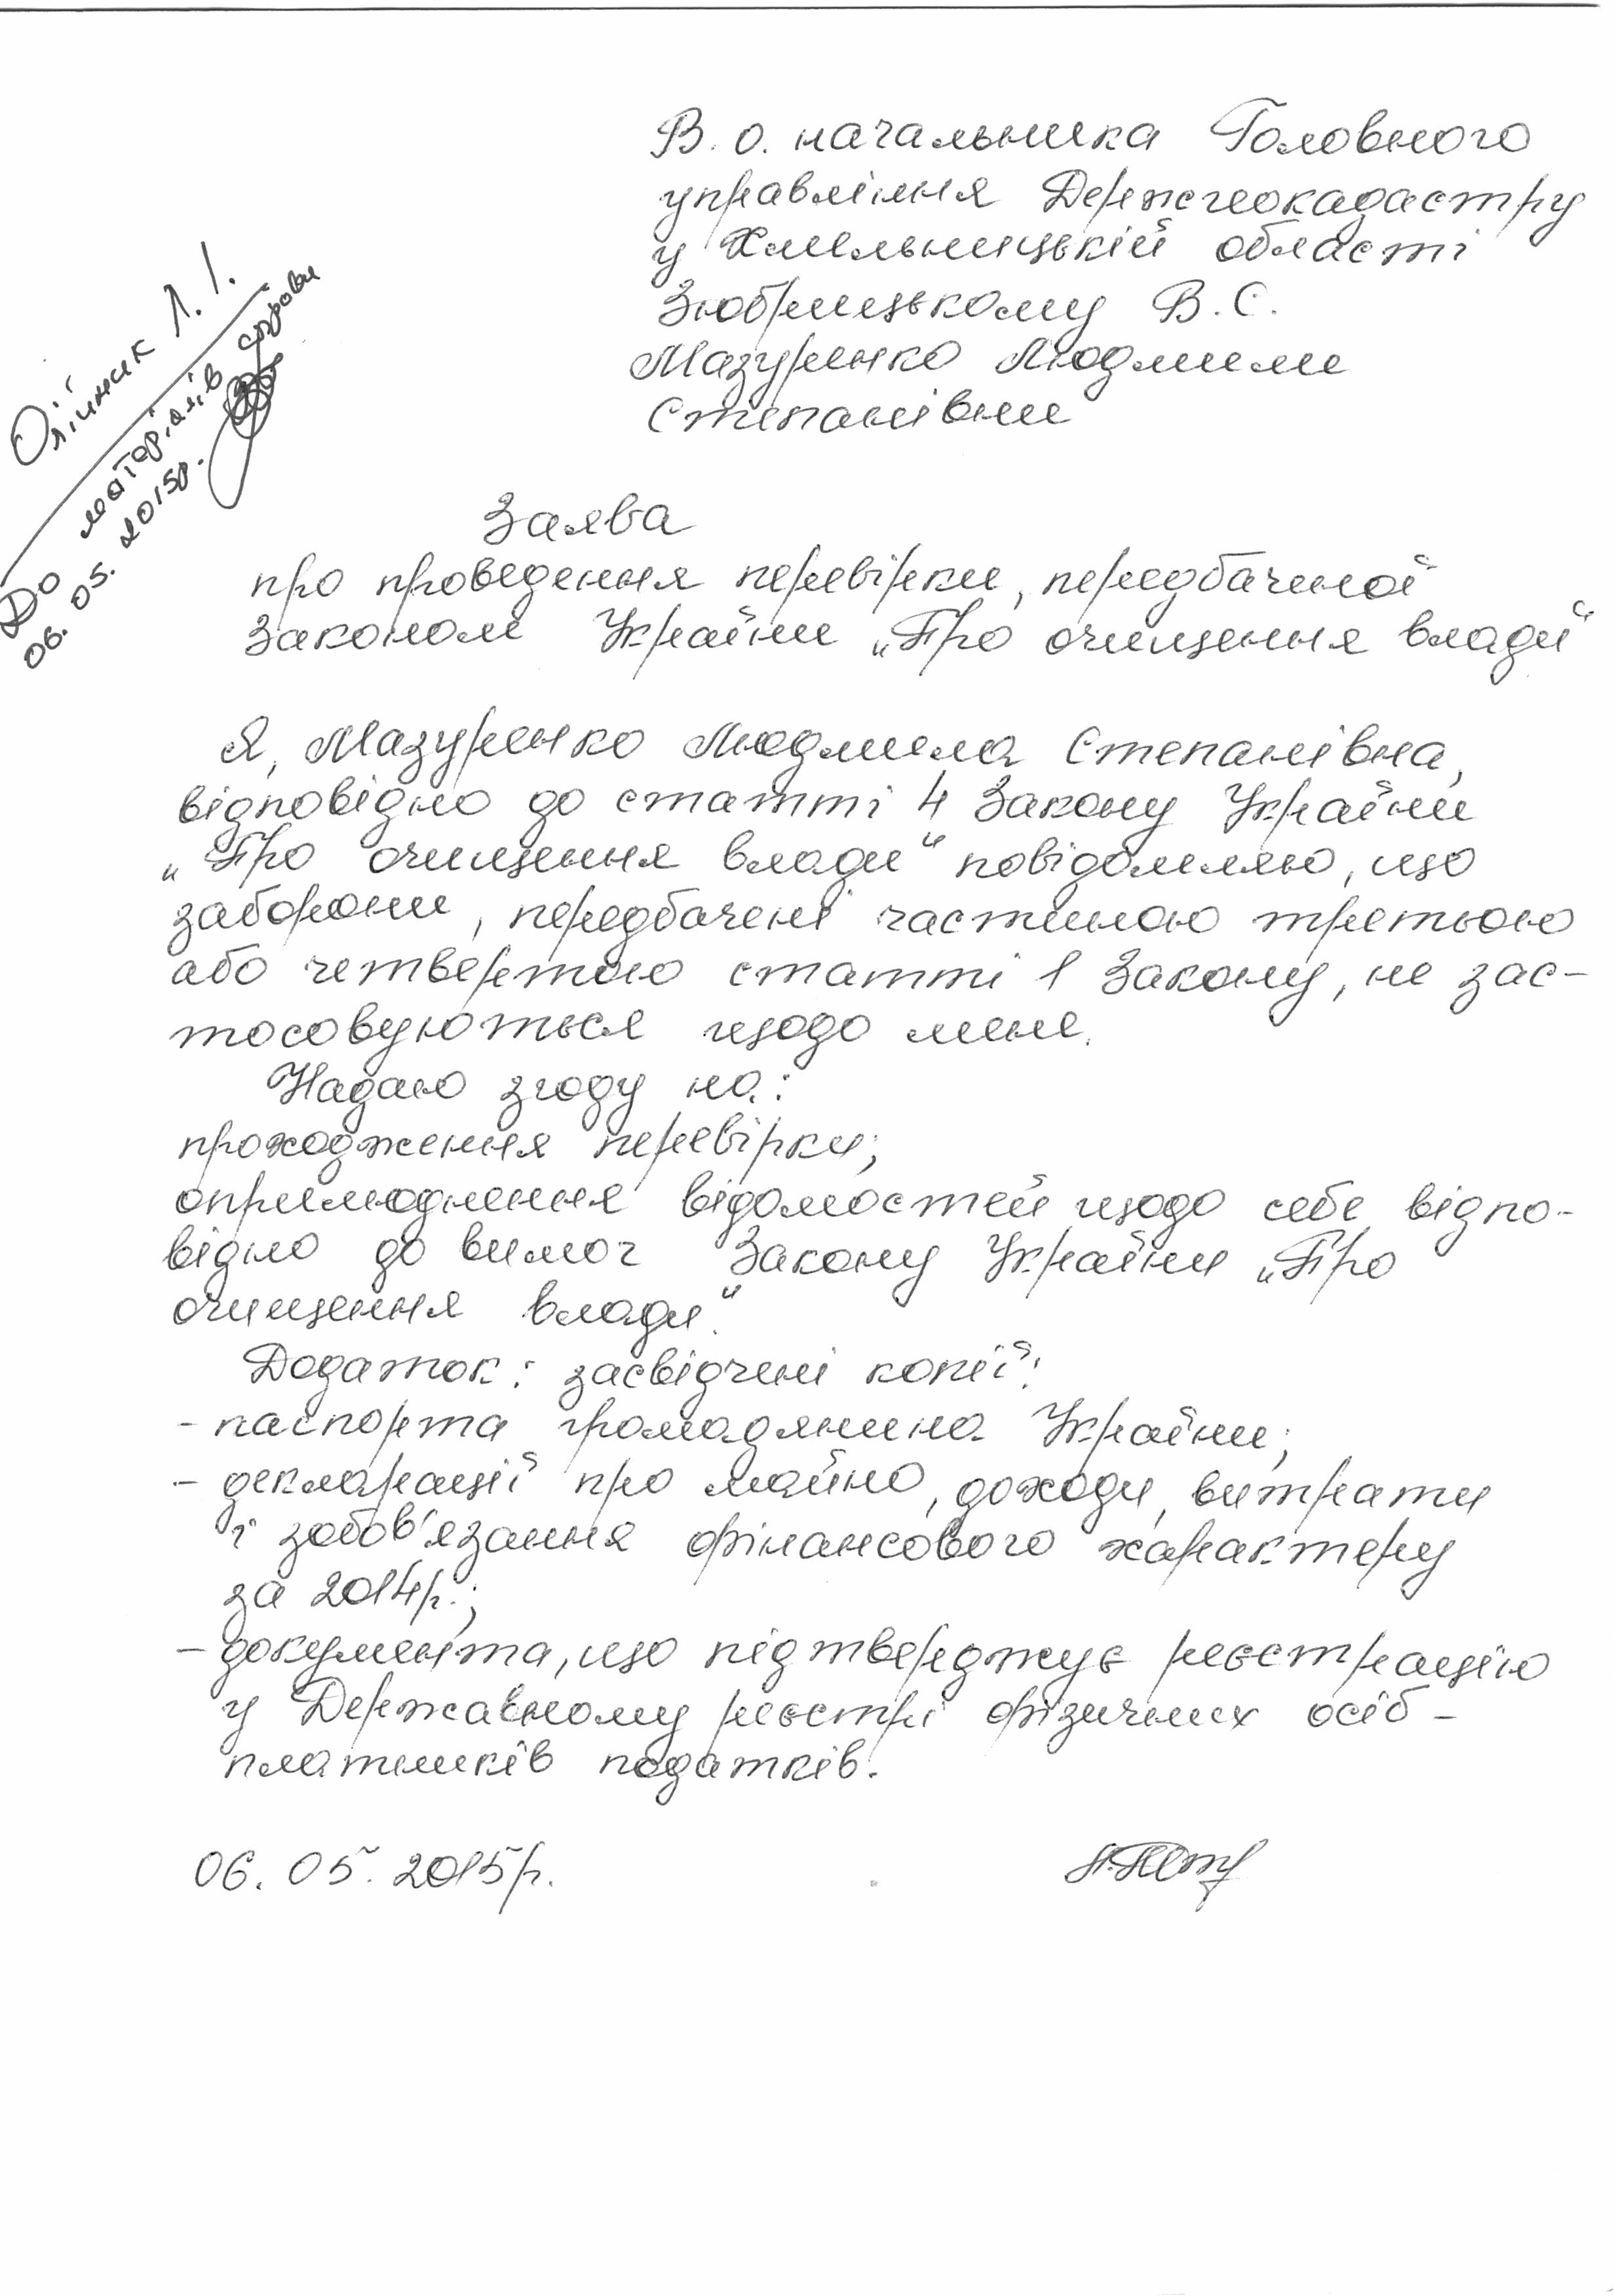 В. о. начальника Головного
управління Держгеокадастру
у Хмельницькій області
Зюбрицькому В. С.
Мазуренко Людмили
Степанівни
Олійник Л. І.
До матеріалів справи
06. 05. 2015р.
Заява
про проведення перевірки, передбаченої
Законом України „Про очищення влади“
Я, Мазуренко Людмила Степанівна,
відповідно до статті 4 Закону України
„Про очищення влади“ повідомляю, що
заборони, передбачені частиною третьою
або четвертою статті 1 Закону, не зас-
тосовуються щодо мене.
Надаю згоду на:
проходження перевірки;
оприлюднення відомостей щодо себе відпо-
відно до вимог Закону України „Про
очищення влади“.
Додаток: засвідчені копії:
- паспорта громадянина України;
- декларації про майно, доходи, витрати
і зобов'язання фінансового характеру
за 2014р.;
- документа, що підтверджує реєстрацію
у Державному реєстрі фізичних осіб -
платників податків.
06. 05. 2015р.